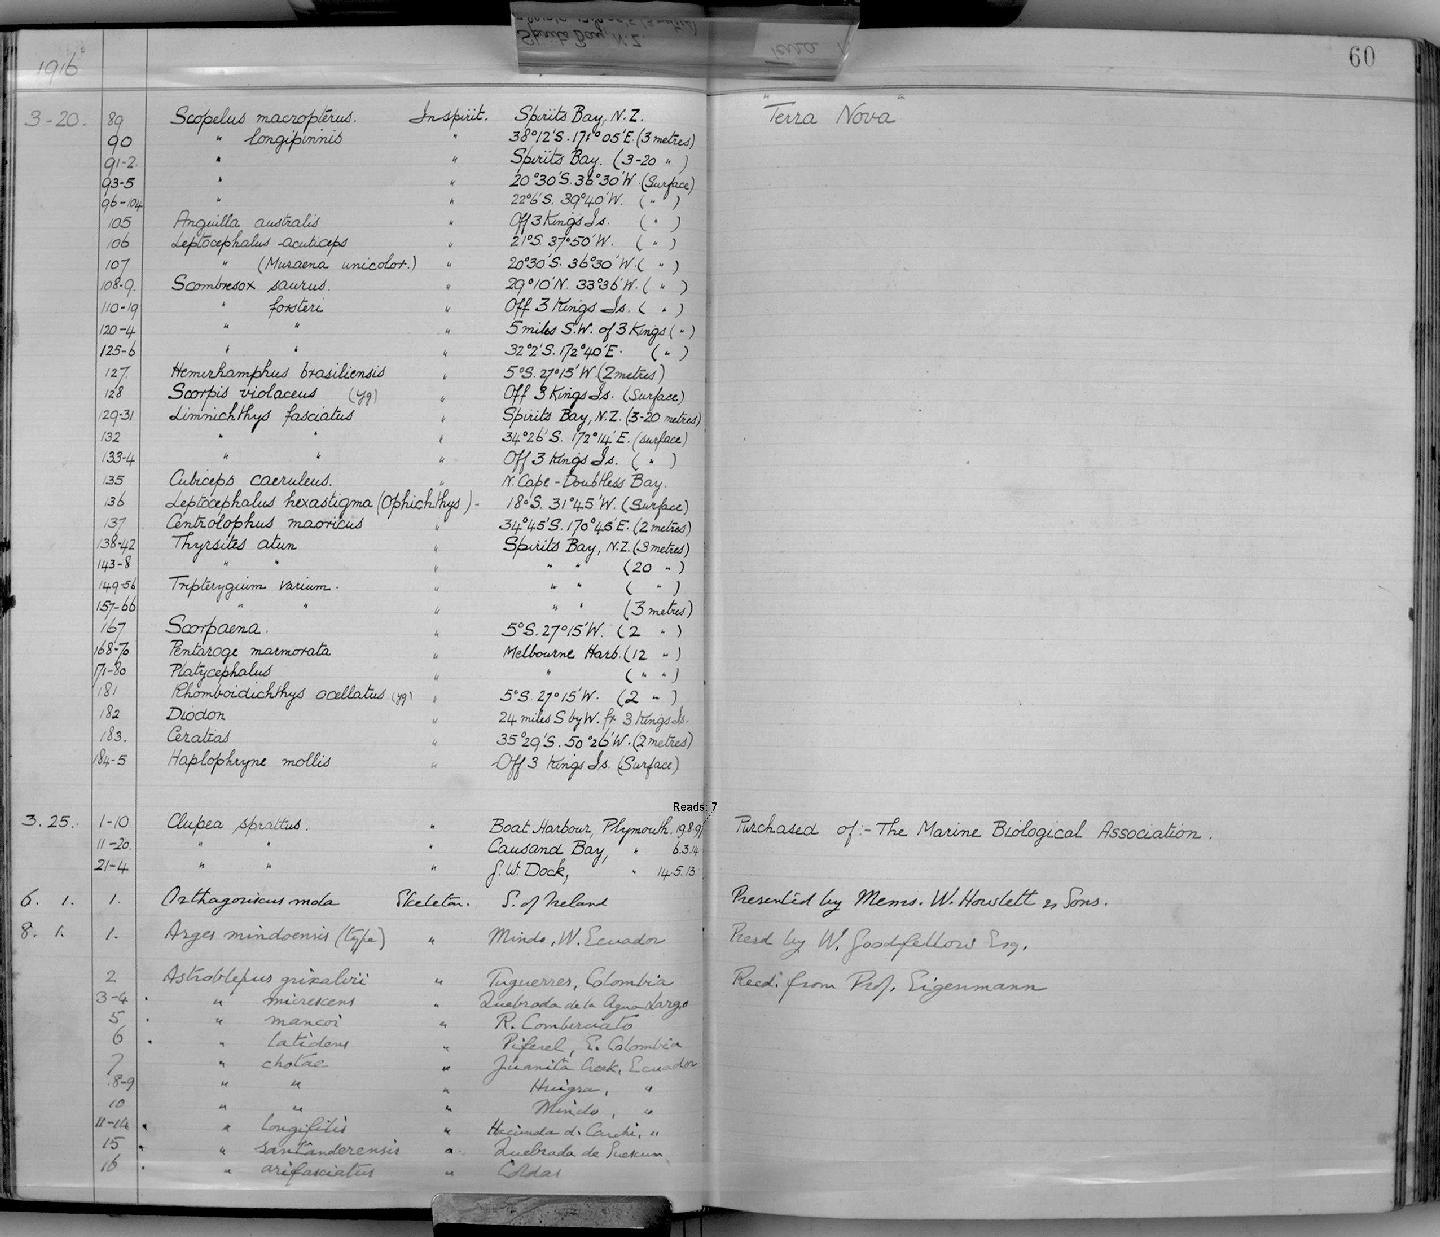 1916
60
3-20. 89 Scopelus macropterus. In spirit. Spirits Bay, N.Z. "Terra Nova"
90 " longipinnis " 38°12'S. 171°05'E. (3 metres)
91-2. " " Spirits Bay. (3-20 " )
93-5 " " 20°30'S. 36°30'W (Surface)
96-104 " " 22°6'S. 39°40'W. ( " )
105 Anguilla australis " Off 3 Kings Is. ( " )
106 Leptocephalus acuticeps " 21°S. 37°50'W. ( " )
107 " (Muraena unicolor.) " 20°30'S. 36°30'W. ( " )
108-9. Scombresox saurus. " 29°10'N. 33°36'W. ( " )
110-19 " forsteri " Off 3 Kings Is. ( " )
120-4 " " " 5 miles S.W. of 3 Kings ( " )
125-6 " " " 32°2'S. 172°40'E. ( " )
127. Hemirhamphus brasiliensis " 5°S. 27°15'W (2 metres)
128 Scorpis violaceus (yg) " Off 3 Kings Is. (Surface)
129-31 Limnichthys fasciatus " Spirits Bay, N.Z. (3-20 metres)
132 " " " 34°26'S. 172°14'E. (surface)
133-4 " " " Off 3 Kings Is. ( " )
135 Cubiceps caeruleus. " N. Cape - Doubtless Bay.
136 Leptocephalus hexastigma (Ophichthys) - 18°S. 31°45'W. (Surface)
137 Centrolophus maoricus " 34°45'S. 170°45'E. (2 metres)
138-42 Thyrsites atun " Spirits Bay, N.Z. (3 metres)
143-8 " " " " " (20 " )
149-56 Tripterygium varium. " " " ( " )
157-66 " " " " " (3 metres)
167 Scorpaena. " 5°S. 27°15'W. (2 " )
168-70 Pentaroge marmorata " Melbourne Harb. (12 " )
171-80 Platycephalus " " ( " " )
181 Rhomboidichthys ocellatus (yg) " 5°S. 27°15'W. (2 " )
182 Diodon " 24 miles S by W. fr. 3 Kings Is.
183. Ceratias " 35°29'S. 50°26'W. (2 metres)
184-5 Haplophryne mollis " Off 3 Kings Is. (Surface)
Reads: 7
3.25. 1-10 Clupea sprattus. " Boat Harbour, Plymouth. Purchased of:- The Marine Biological Association.
11-20 " " " Causand Bay, " 6.3.14
21-4 " " G.W. Dock, " 14.5.13
6. 1. 1. Orthagoriscus mola Skeleton. S. of Ireland Presented by Messrs. W. Howlett & Sons.
8. 1. 1. Arges mindoensis (type) " Mindo, W. Ecuador Presd by W. Goodfellow Esq.
2 Astroblepus grixalvii " Tuquerres, Colombia Recd. from Prof. Eigenmann
3-4 " micrescens " Quebrada de la Agua Larga
5 " mancoi " R. Comberciato
6 " latidens " Piferel, E. Colombia
7 " chotae " Juanita Creek, Ecuador
8-9 " " " Huigra, "
10 " " " Mindo, "
11-14 " longifilis " Hacienda de "
15 " santanderensis " Quebrada de
16 " " Caldas